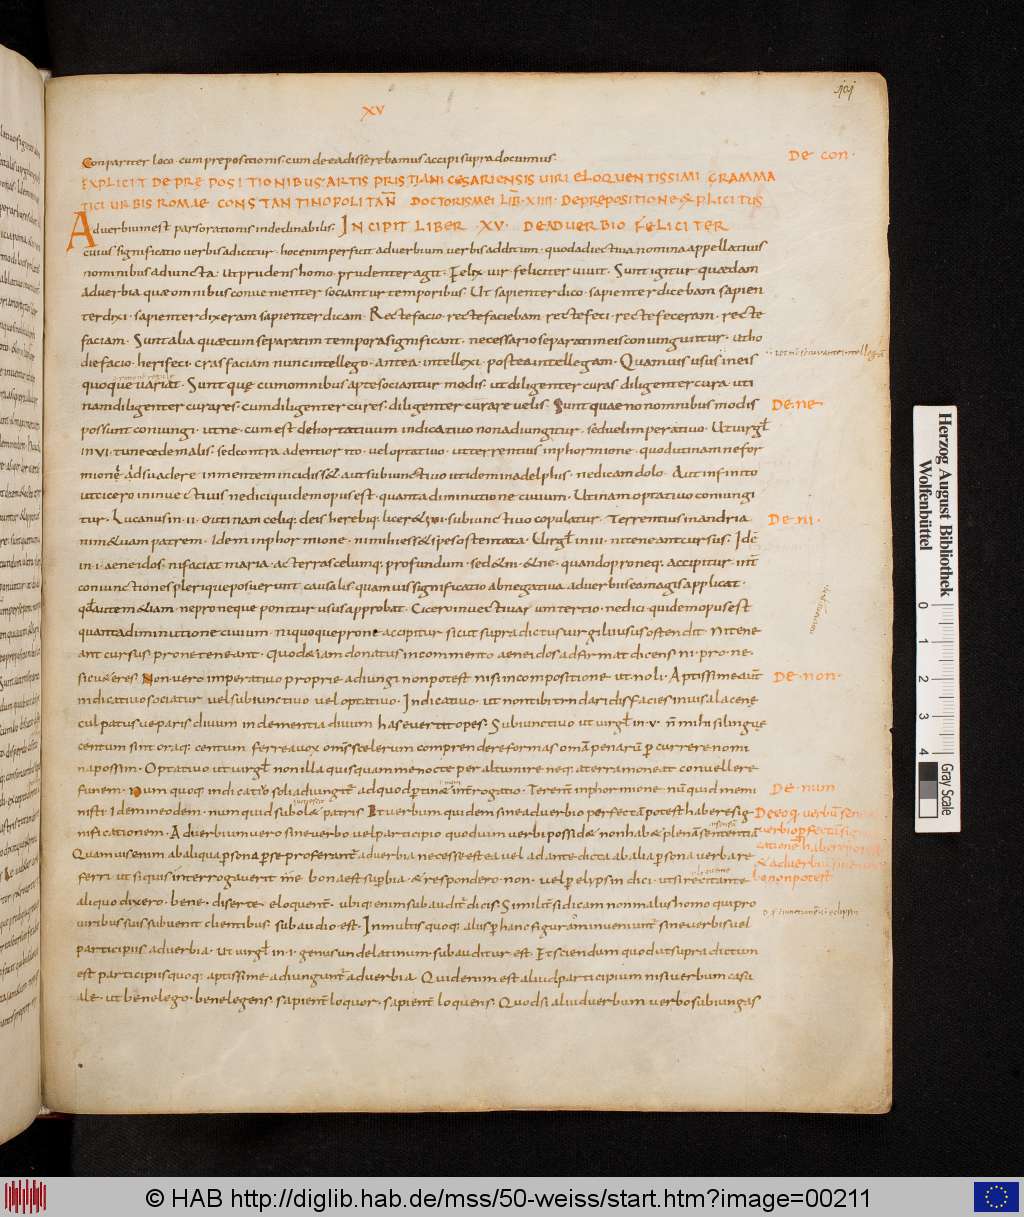 XV
101
Con pariter loco · cum prepositionis · cum de ea disserebamus accipi supra documus ·
De con ·
EXPLICIT DE PREPOSITIONIBUS · ARTIS PRISTIANI CESARIENSIS UIRI ELOQUENTISSIMI GRAMMA
TICI URBIS ROMAE CONSTANTINOPOLITAN DOCTORIS MEI LIB · XIIII · DE PREPOSITIONE EXPLICITUS
Aduerbium est pars orationis indeclinabilis · INCIPIT LIBER · XV · DE ADUERBIO FELICITER
cuius significatio uerbis adicitur · hoc enim perficit aduerbium uerbis additum · quod adiectiua nomina appellatiuis
nominibus adiuncta · ut prudens homo prudenter agit · Felix uir feliciter uiuit · Sunt igitur quædam
aduerbia quæ omnibus conuenienter sociantur temporibus · Ut sapienter dico · sapienter dicebam sapien
ter dixi · sapienter dixeram sapienter dicam · Recte facio · recte faciebam · recte feci · recte feceram · recte
faciam · Sunt alia quæ cum separatim tempora significant · necessario separatim eis coniunguntur · ut ho
die facio · heri feci · cras faciam nunc intellego · antea · intellexi · postea intellegam · Quamuis usus in eis
quoque uariat · Sunt quę cum omnibus arte sociantur modis · ut diligenter curas · diligenter cura · uti
nam diligenter curares · cum diligenter cures · diligenter curare uelis · Sunt quae non omnibus modis
De · ne
possunt coniungi · ut ne · cum est dehortatiuum indicatiuo non adiungitur · sed uel imperatiuo · Ut uirgl
in · vi · tu ne cede malis · sed contra adentior ito · uel optatiuo · ut terrentius in phormione · quod utinam ne for
mioni adsuadere in mentem incidiss& · aut subiunctiuo ut idem in adelphis · ne dicam dolo · Aut infinito
ut cicero in inuectiuis nedici quidem opus est · quanta diminutione ciuium · Utinam optatiuo coniungi
tur · Lucanus in · ii · O utinam
subiunctiuo copulatur · Terrentius in andria
De · ni ·
ni m&uam patrem · Idem in phormione · ni mihi ess& spes ostentata · Uirgl in iii · ni teneant cursus · Idē
in · i · aeneidos · ni faciat maria · ac terras celumq: profundum · sed & ni · & ne · quando pro neq: accipitur · int
coniunctiones plerique posuerunt causalis · quamuis significatio abnegatiua aduerbiis ea magis applicat ·
qđ autem &iam · ne pro neque ponitur usus approbat · Cicero inuectiuarum tertio · ne dici · quidem opus est
quanta diminutione ciuium · ni quoque pro ne accipitur sicut supra dictus uirgilii usus ostendit · Ni tene
ant cursus · pro ne teneant · Quod &iam donatus in commento aeneidos adfirmat dicens ni · pro · ne ·
sic ueteres · Non uero imperatiuo proprie adiungi non potest nisi in compositione · ut noli · Aptissime aūt
De · non ·
indicatiuo sociatur uel subiunctiuo uel optatiuo · Indicatiuo · ut non tibi tyndaridis facies inuisa lacene
culpatus ue paris diuum inclementia diuum has euertit opes · Subiunctiuo ut uirgl in · v · ñ mihi si linguę
centum sint oraq: centum ferrea uox oms scelerum comprendere formas omā penarū p currere nomi
na possim · Optatiuo ut uirgl non illa quisquam me nocte per altum ire neq: a terra moneat conuellere
funem · Num quoq: indicatiuo soli adiungit
De · num
nisti · Idem in eodem · numquid subol& patris · Et uerbum quidem sine aduerbio perfectā potest habere sig
De eo q uerbū sen
nificationem · Aduerbium uero sine uerbo uel participio quod uim uerbi possid& non hab& plenā sententiā
Quamuis enim ab aliqua psona pse proferant aduerbia necesse est ea uel ad ante dicta ab alia psona uerba re
ferri · ut si quis interrogauerit
& respondero · non · uel p elypsin dici · ut si recitante
bo non potest
aliquo dixero · bene · diserte eloquent · ubiq: enim subaudit dicis · Similit si dicam non malus homo qui pro
uiribus suis subuenit clientibus subaudio est · In multis quoq: alus p hanc figuram inueniunt sine uerbis uel
participiis aduerbia · ut uirgl in · i · genus unde latinum · subauditur est · Et sciendum quod ut supra dictum
est participiis quoq: aptissime adiungunt aduerbia · Quid enim est aliud participium nisi uerbum casu
ale · ut bene lego · bene legens · sapient loquor · sapient loquens · Quod si aliud uerbum uerbo subiungas
Herzog August Bibliothek
Wolfenbüttel
0 1 2 3 4
Gray Scale
© HAB http://diglib.hab.de/mss/50-weiss/start.htm?image=00211